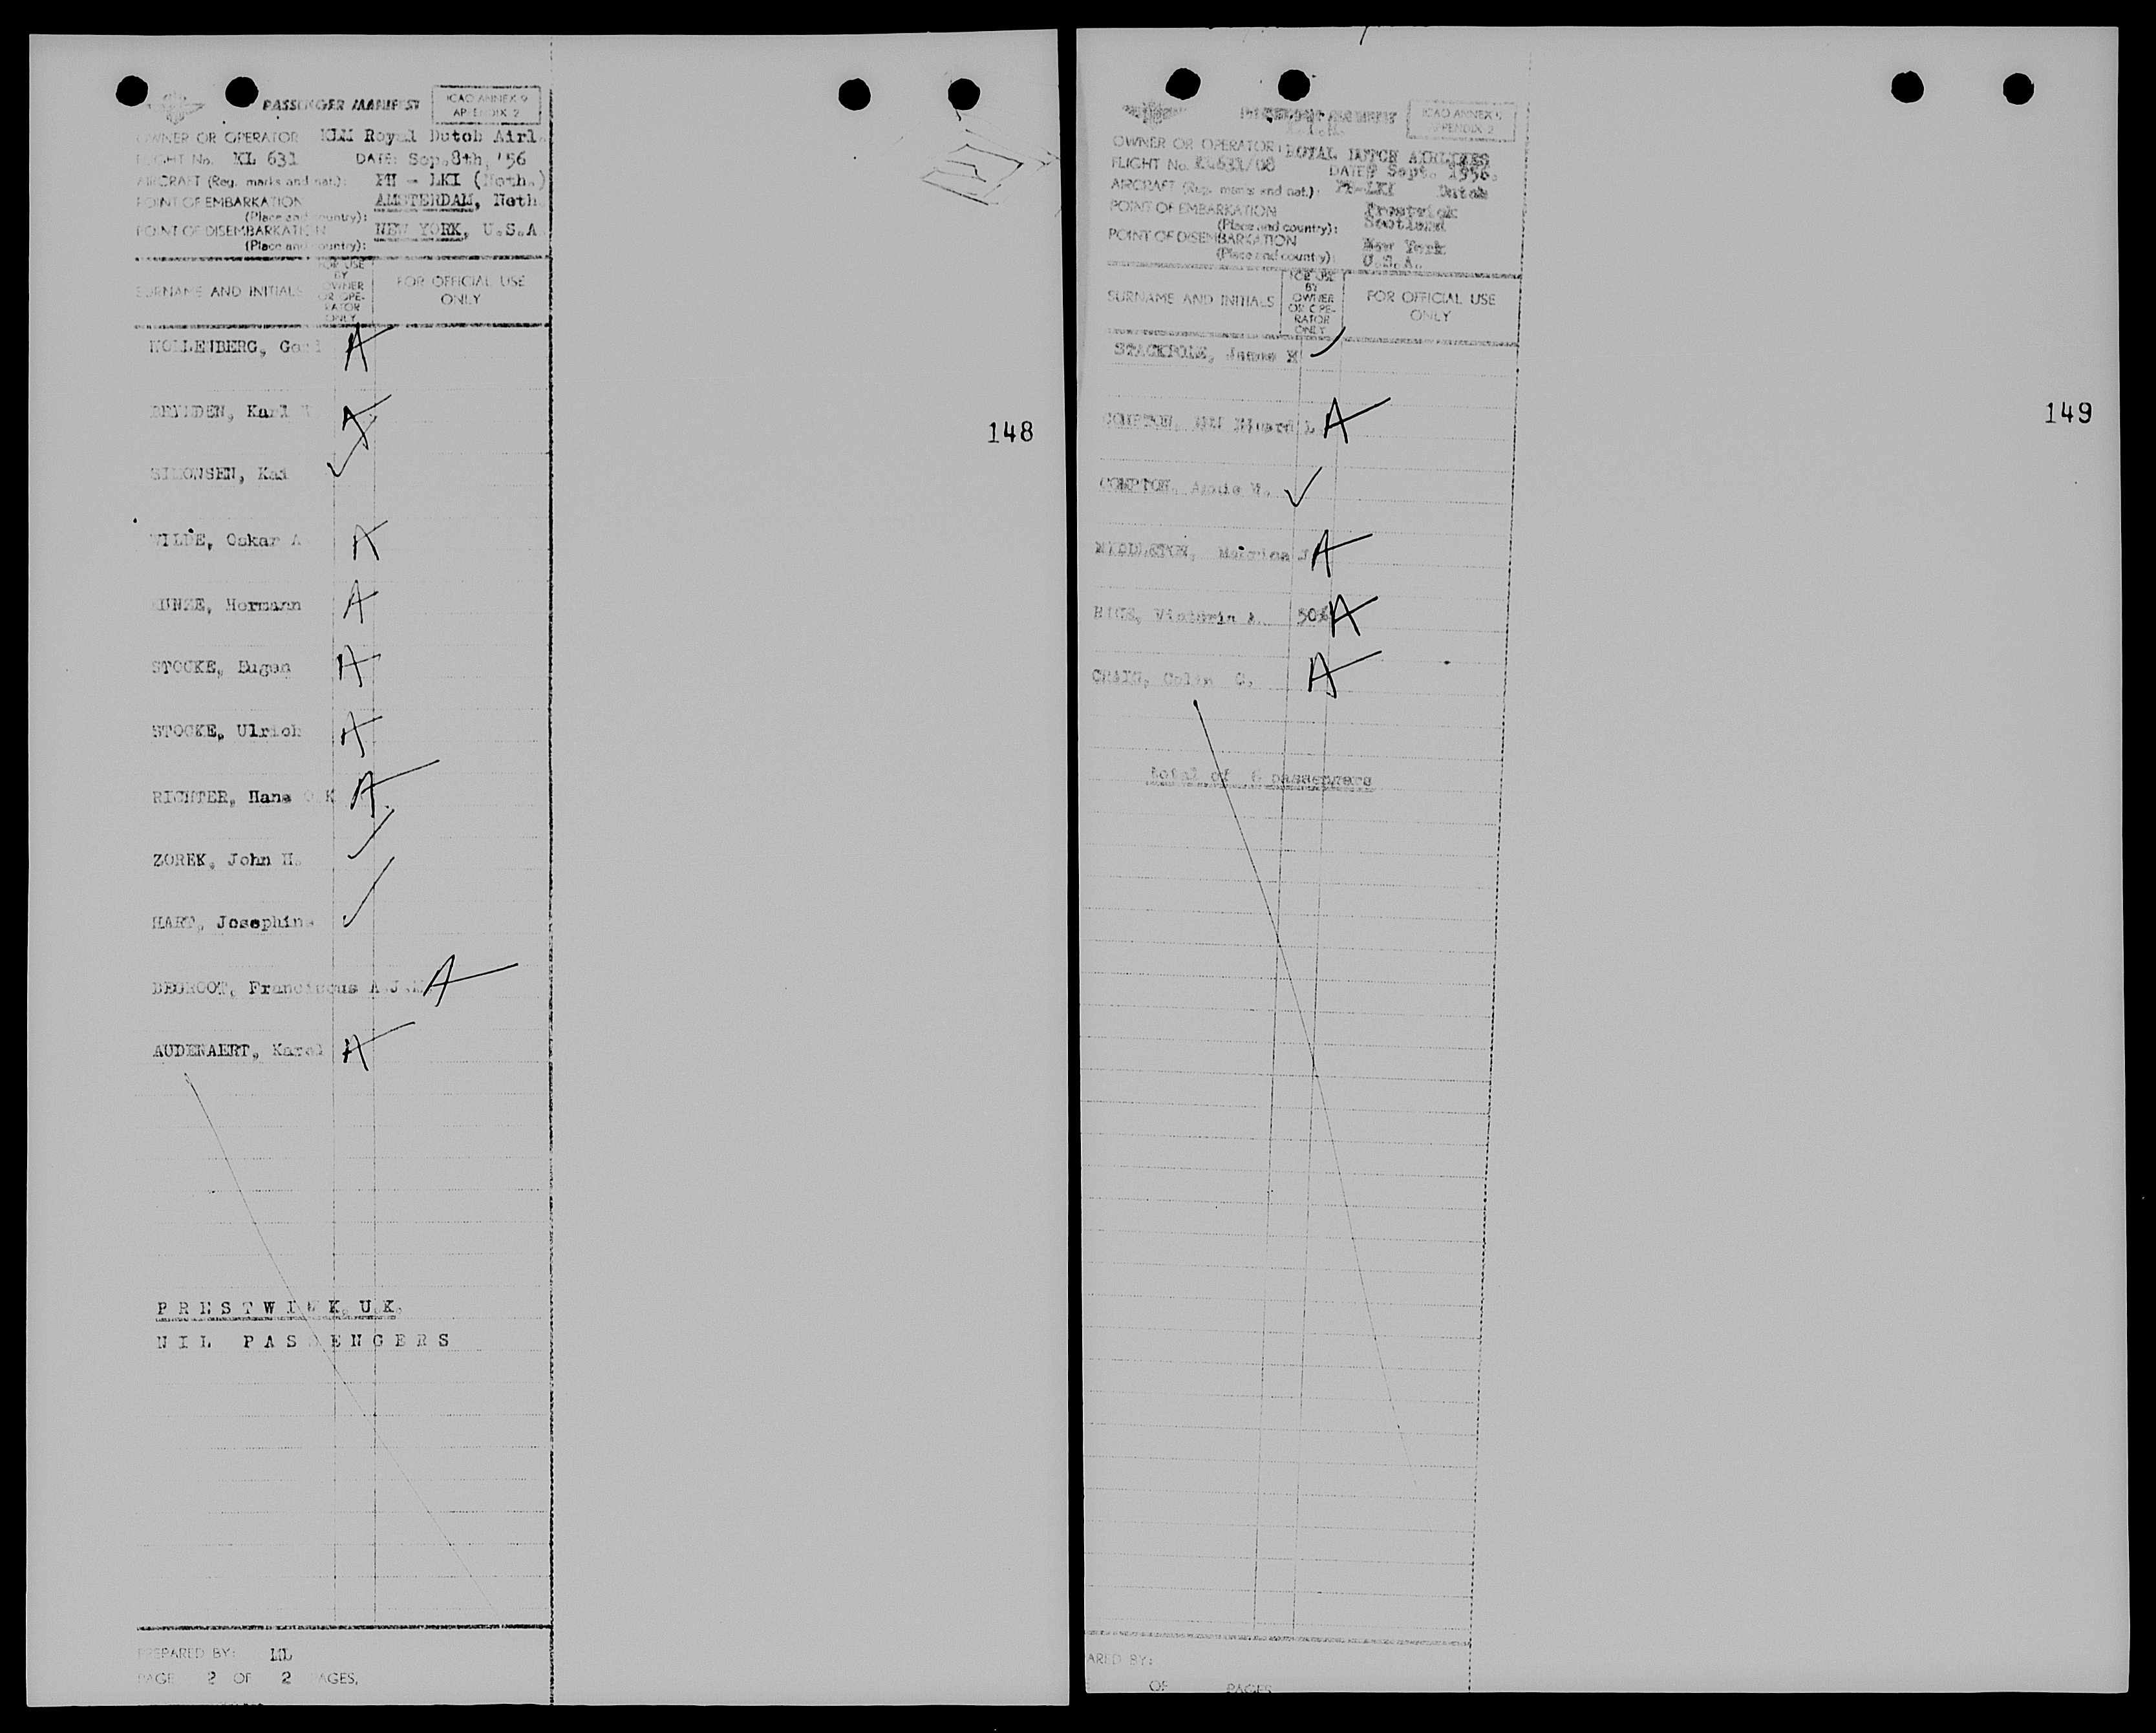 PASSENGER MANIFEST
ICAO ANNEX 9
APPENDIX 2
OWNER OR OPERATOR KLM Royal Dutch Airl.
FLIGHT No. KL 631 DATE: Sep.8th,'56
AIRCRAFT (Reg. marks and nat.): PH - LKI (Neth.)
POINT OF EMBARKATION AMSTERDAM, Neth.
(Place and country):
POINT OF DISEMBARKATION NEW YORK, U.S.A.
(Place and country):
SURNAME AND INITIALS
FOR USE
BY
OWNER
OR OPE-
RATOR
ONLY
FOR OFFICIAL USE
ONLY
HOLLENBERG, A
Karl A
SIMONSEN, Kai ✓
WILDE, Oskar A A
KUNZE, Hermann A
STOCKE, Eugen A
STOCKE, Ulrich A
RICHTER, Hans O K A
ZOREK, John H. ✓
HART, Josephine ✓
DEGROOT, Franciscus A.J.M. A
AUDENAERT, Karel A
PRESTWICK, U.K.
NIL PASSENGERS
PREPARED BY: ML
PAGE 2 OF 2 PAGES,
148
ICAO ANNEX 9
APPENDIX 2
OWNER OR OPERATOR: ROYAL DUTCH AIRLINES
FLIGHT No. KL631/08 DATE: 9 Sept. 1956.
AIRCRAFT (Reg. marks and nat.): PH-LKI Dutch
POINT OF EMBARKATION Prestwick
(Place and country): Scotland
POINT OF DISEMBARKATION New York
(Place and country): U.S.A.
SURNAME AND INITIALS
FOR USE
BY
OWNER
OR OPE-
RATOR
ONLY
FOR OFFICIAL USE
ONLY
STACKPOLE, James ✓
COMPTON, Edward L A
COMPTON, Annie M. ✓
MIDDLETON, J A
Victoria A. 50% A
CRAIG, Colin C. A
total of 6 passengers
ARED BY:
OF PAGES
149